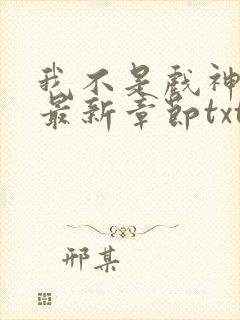 我不是戏神
最新章节txt
邢某